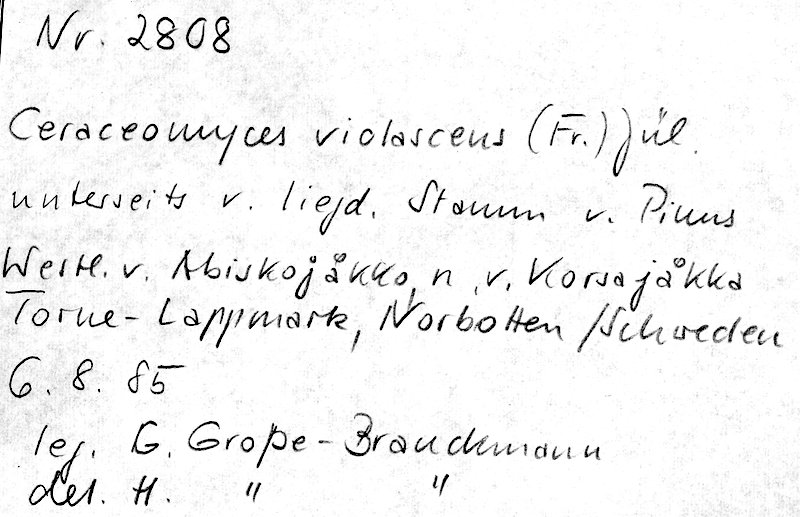 Nr. 2808
Ceraceomyces violascens (Fr.) Jül.
unterseits v. liegd. Stamm v. Pinus
Westl. v. Abiskojåkko, n. v. Korsajåkka
Torne-Lappmark, Norbotten / Schweden
6. 8. 85
leg. G. Große-Brauckmann
det. H. " "